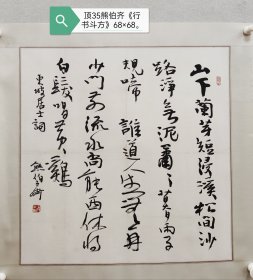 顶35熊伯齐《行
书斗方》68×68。
山下兰芽短浸溪松间沙
路净无泥萧萧暮雨子
规啼谁道人生无再
少门前流水尚能西休将
白发唱黄鸡
东坡居士词
熊伯齐